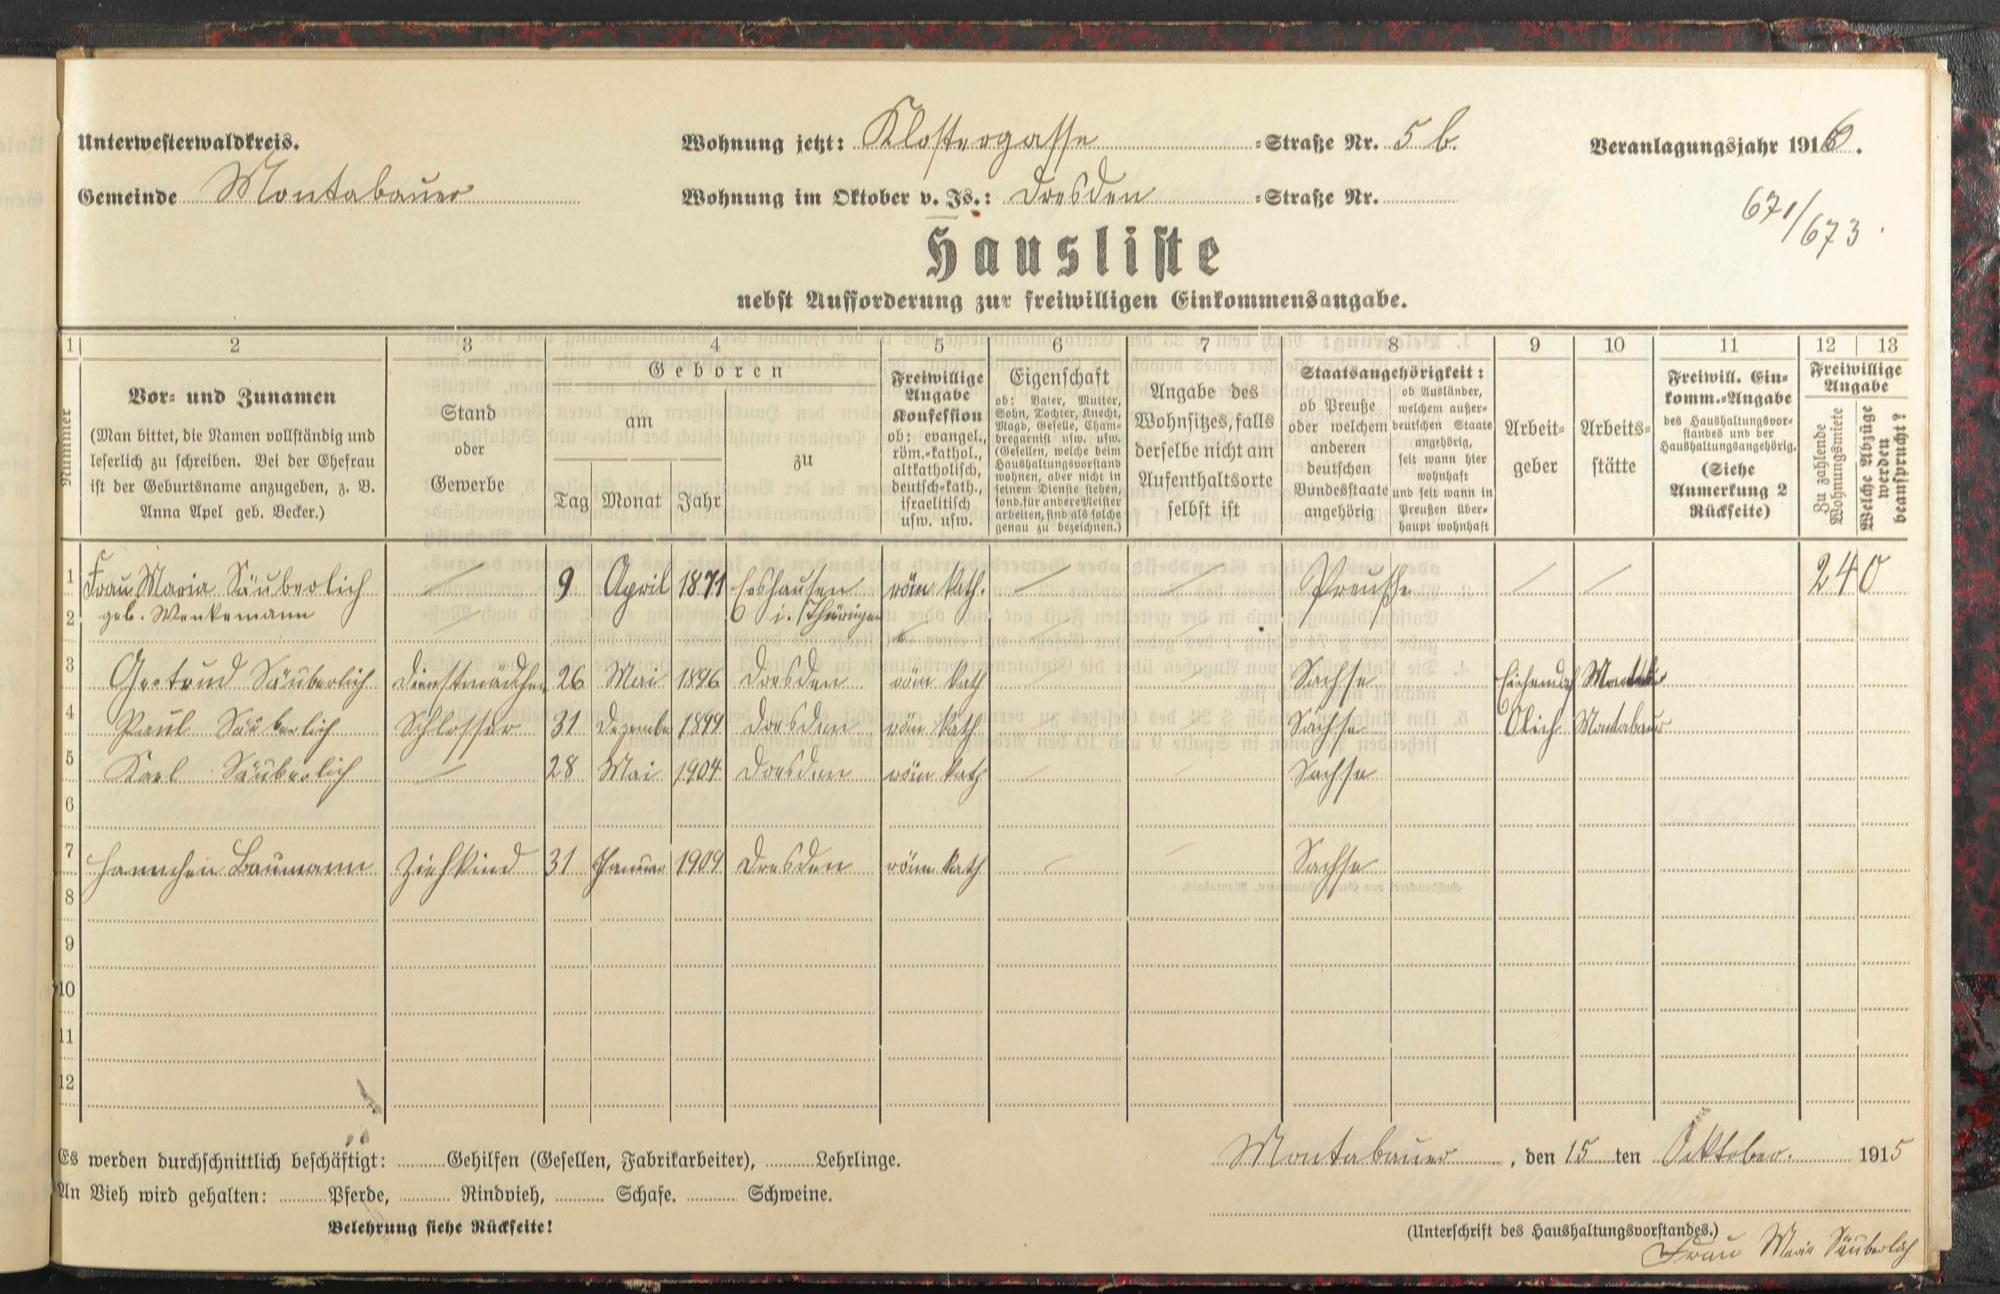 Unterwesterwaldkreis.
Wohnung jetzt: Klostergasse =Straße Nr. 5 b.
Veranlagungsjahr 1916.
Gemeinde Montabaur
Wohnung im Oktober v. Js.: Dresden =Straße Nr.
671/673.
Hausliste
nebst Aufforderung zur freiwilligen Einkommensangabe.
1 2 3 4 5 6 7 8 9 10 11 12 13
Nummer
Vor- und Zunamen
(Man bittet, die Namen vollständig und
leserlich zu schreiben. Bei der Ehefrau
ist der Geburtsname anzugeben, z. B.
Anna Apel geb. Becker.)
Stand
oder
Gewerbe
Geboren
am
Tag Monat Jahr
zu
Freiwillige
Angabe
Konfession
ob: evangel.,
röm.-kathol.,
altkatholisch,
deutsch-kath.,
israelitisch
usw. usw.
Eigenschaft
ob: Vater, Mutter,
Sohn, Tochter, Knecht,
Magd, Geselle, Cham-
bregarnist usw. usw.
(Gesellen, welche beim
Haushaltungsvorstand
wohnen, aber nicht in
seinem Dienste stehen,
sond. für andere Meister
arbeiten, sind als solche
genau zu bezeichnen.)
Angabe des
Wohnsitzes, falls
derselbe nicht am
Aufenthaltsorte
selbst ist
Staatsangehörigkeit:
ob Preuße
oder welchem
anderen
deutschen
Bundesstaate
angehörig
ob Ausländer,
welchem außer-
deutschen Staate
angehörig,
seit wann hier
wohnhaft
und seit wann in
Preußen über-
haupt wohnhaft
Arbeit-
geber
Arbeits-
stätte
Freiwill. Ein-
komm.-Angabe
des Haushaltungsvor-
standes und der
Haushaltungsangehörig.
(Siehe
Anmerkung 2
Rückseite)
Freiwillige
Angabe
Zu zahlende
Wohnungsmiete
Welche Abzüge
werden
beansprucht?
1 Frau Maria Säuberlich — 9 April 1871 Ershausen röm kath. — — Preuße — — 240
2 geb. Wenkemann — i. Thüringen — — —
3 Gertrud Säuberlich Dienstmädchen 26 Mai 1896 Dresden röm kath — — Sachse
4 Paul Säuberlich Schlosser 31 Dezember 1899 Dresden röm kath — — Sachse Olig Montabaur
5 Karl Säuberlich — 28 Mai 1904 Dresden röm kath — — Sachse
6
7 Hannchen Baumann Ziehkind 31 Januar 1909 Dresden röm. kath — — Sachse
8
9
10
11
12
Es werden durchschnittlich beschäftigt: Gehilfen (Gesellen, Fabrikarbeiter), Lehrlinge.
Montabaur, den 15 ten Oktober. 1915
An Vieh wird gehalten: Pferde, Rindvieh, Schafe. Schweine.
Belehrung siehe Rückseite!
(Unterschrift des Haushaltungsvorstandes.)
Frau Maria Säuberlich